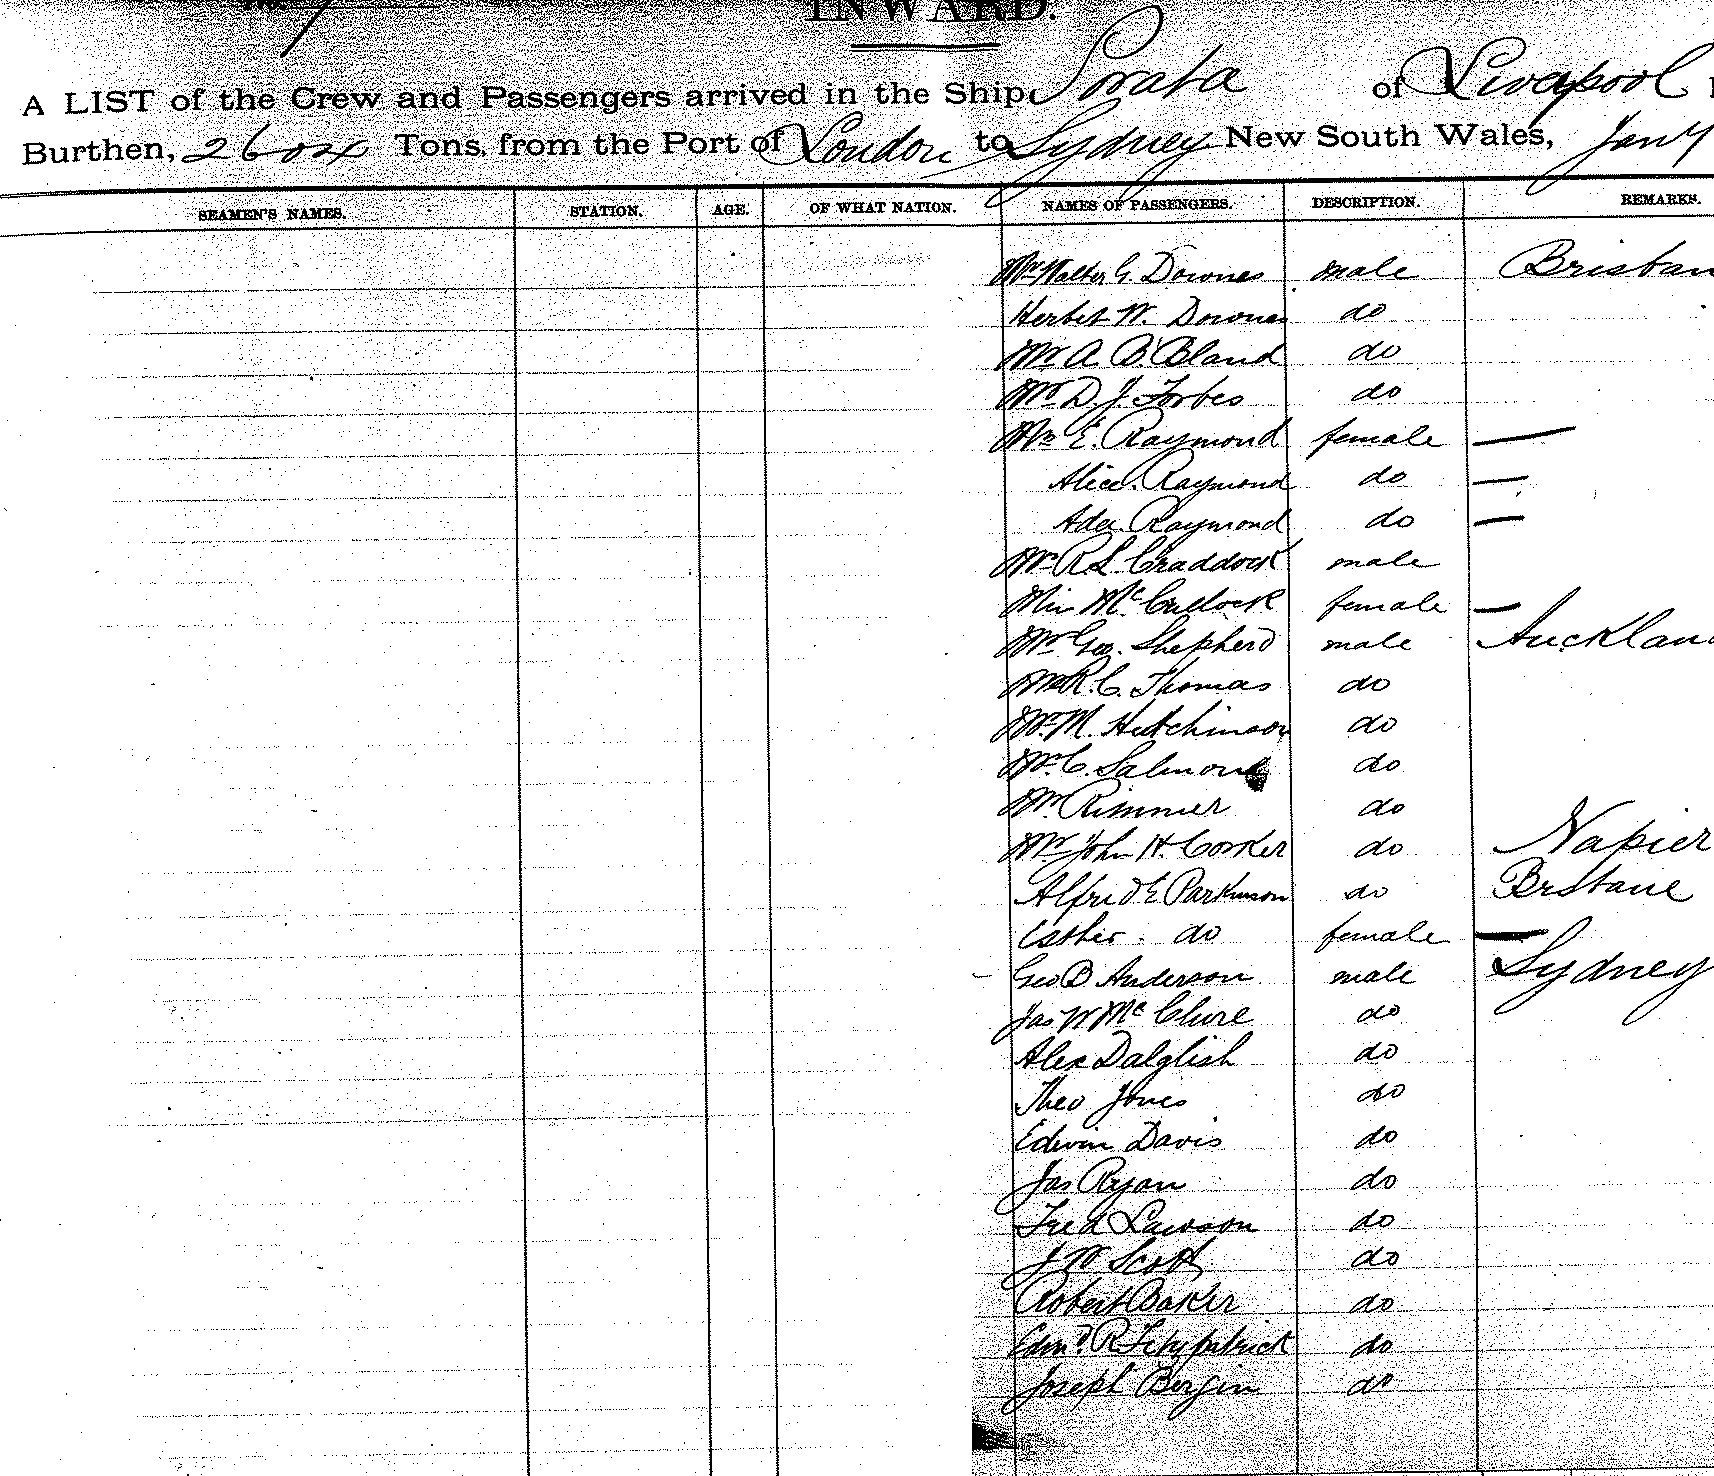 INWARD.
A LIST of the Crew and Passengers arrived in the Ship Sorata of Liverpool
Burthen, Tons, from the Port of London to Sydney New South Wales, Jany
SEAMEN'S NAMES. STATION. AGE. OF WHAT NATION. NAMES OF PASSENGERS. DESCRIPTION. REMARKS.
Mr Walter G. Downes male Brisban
Herbet W. Downes do
Mr A. B. Bland do
Mr D. J. Forbes do
Mrs E. Raymond female —
Alice Raymond do —
Ada Raymond do —
Mr R L Craddock male
Miss McCullock female —
Mr Geo. Shepherd male Auckland
Mr R. C. Thomas do
Mr M. Hutchinson do
Mr C. Salmond do
Mr Rimmer do
Mr John H. Corker do Napier
Alfred E Parkinson do Brsbane
Esther do female —
Geo B Anderson male Sydney
Jas W McClure do
Alex Dalglish do
Theo Jones do
Edwin Davis do
Jas Ryan do
Fred Lawson do
J W Scott do
Robert Baker do
Edmd R Fitzpatrick do
Joseph Bergin do